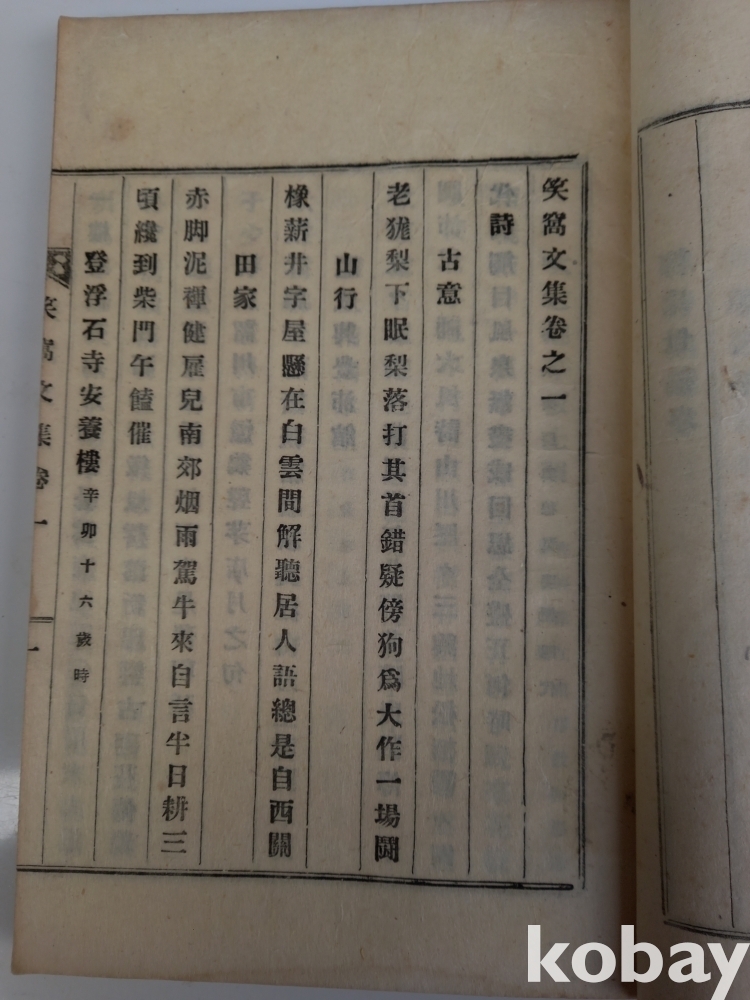 笑窩文集卷之一
詩
古意
老狵梨下眠梨落打其首錯疑傍狗爲大作一場鬪
山行
椽薪井字屋懸在白雲間解聽居人語總是自西關
田家
赤脚泥褌健雇兒南郊烟雨駕牛來自言半日耕三
頃纔到柴門午饁催
登浮石寺安養樓 辛卯十六歲時
笑窩文集卷一
一
kobay